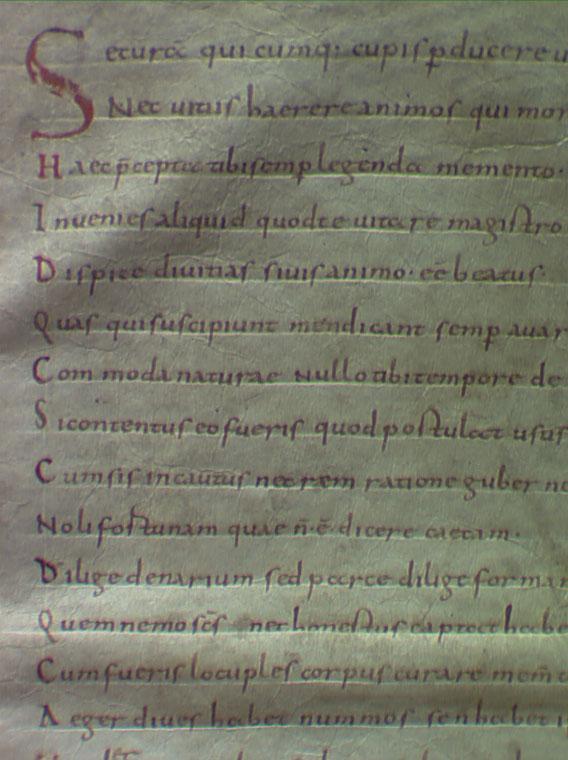 Securā qui cumq: cupis ꝑducere u
Nec uitiis haerere animos qui mor
Haec p̄cepta tibi semp legenda memento.
Inuenies aliquid quod te uitare magistro
Dispice diuitias si uis animo. eē beatus.
Quas qui suscipiunt mendicant semp auar
Commoda naturae nullo tibi tempore de
Si contentus eo fueris quod postulat usus
Cum sis incautus nec rem ratione guber na
Noli fortunam quae n̄.ē. dicere caecam.
Dilige denarium sed parce dilige forman
Quem nemo sc̄s nec honestus captat habe
Cum fueris locuples corpus curare mem̄
Aeger diues habet nummos sen habet i